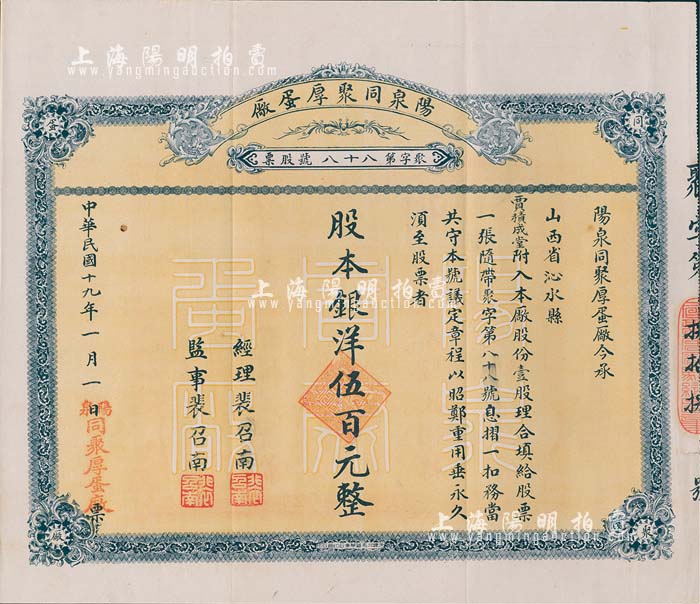 上海陽明拍賣
www.yangmingauction.com
陽泉同聚厚蛋廠
聚字第八十八號股票
同
蛋
聚
廠
陽泉同聚厚蛋廠今承
山西省沁水縣
賈積成堂附入本廠股份壹股理合填給股票
一張隨帶聚字第八十八號息摺一扣務當
共守本號議定章程以昭鄭重用垂永久
須至股票者
股本銀洋伍百元整
經理裴召南
監事裴召南
中華民國十九年一月一日
陽泉同聚厚蛋廠
票
上海陽明拍賣
www.yangmingauction.com
上海陽明拍賣
www.yangmingauction.com